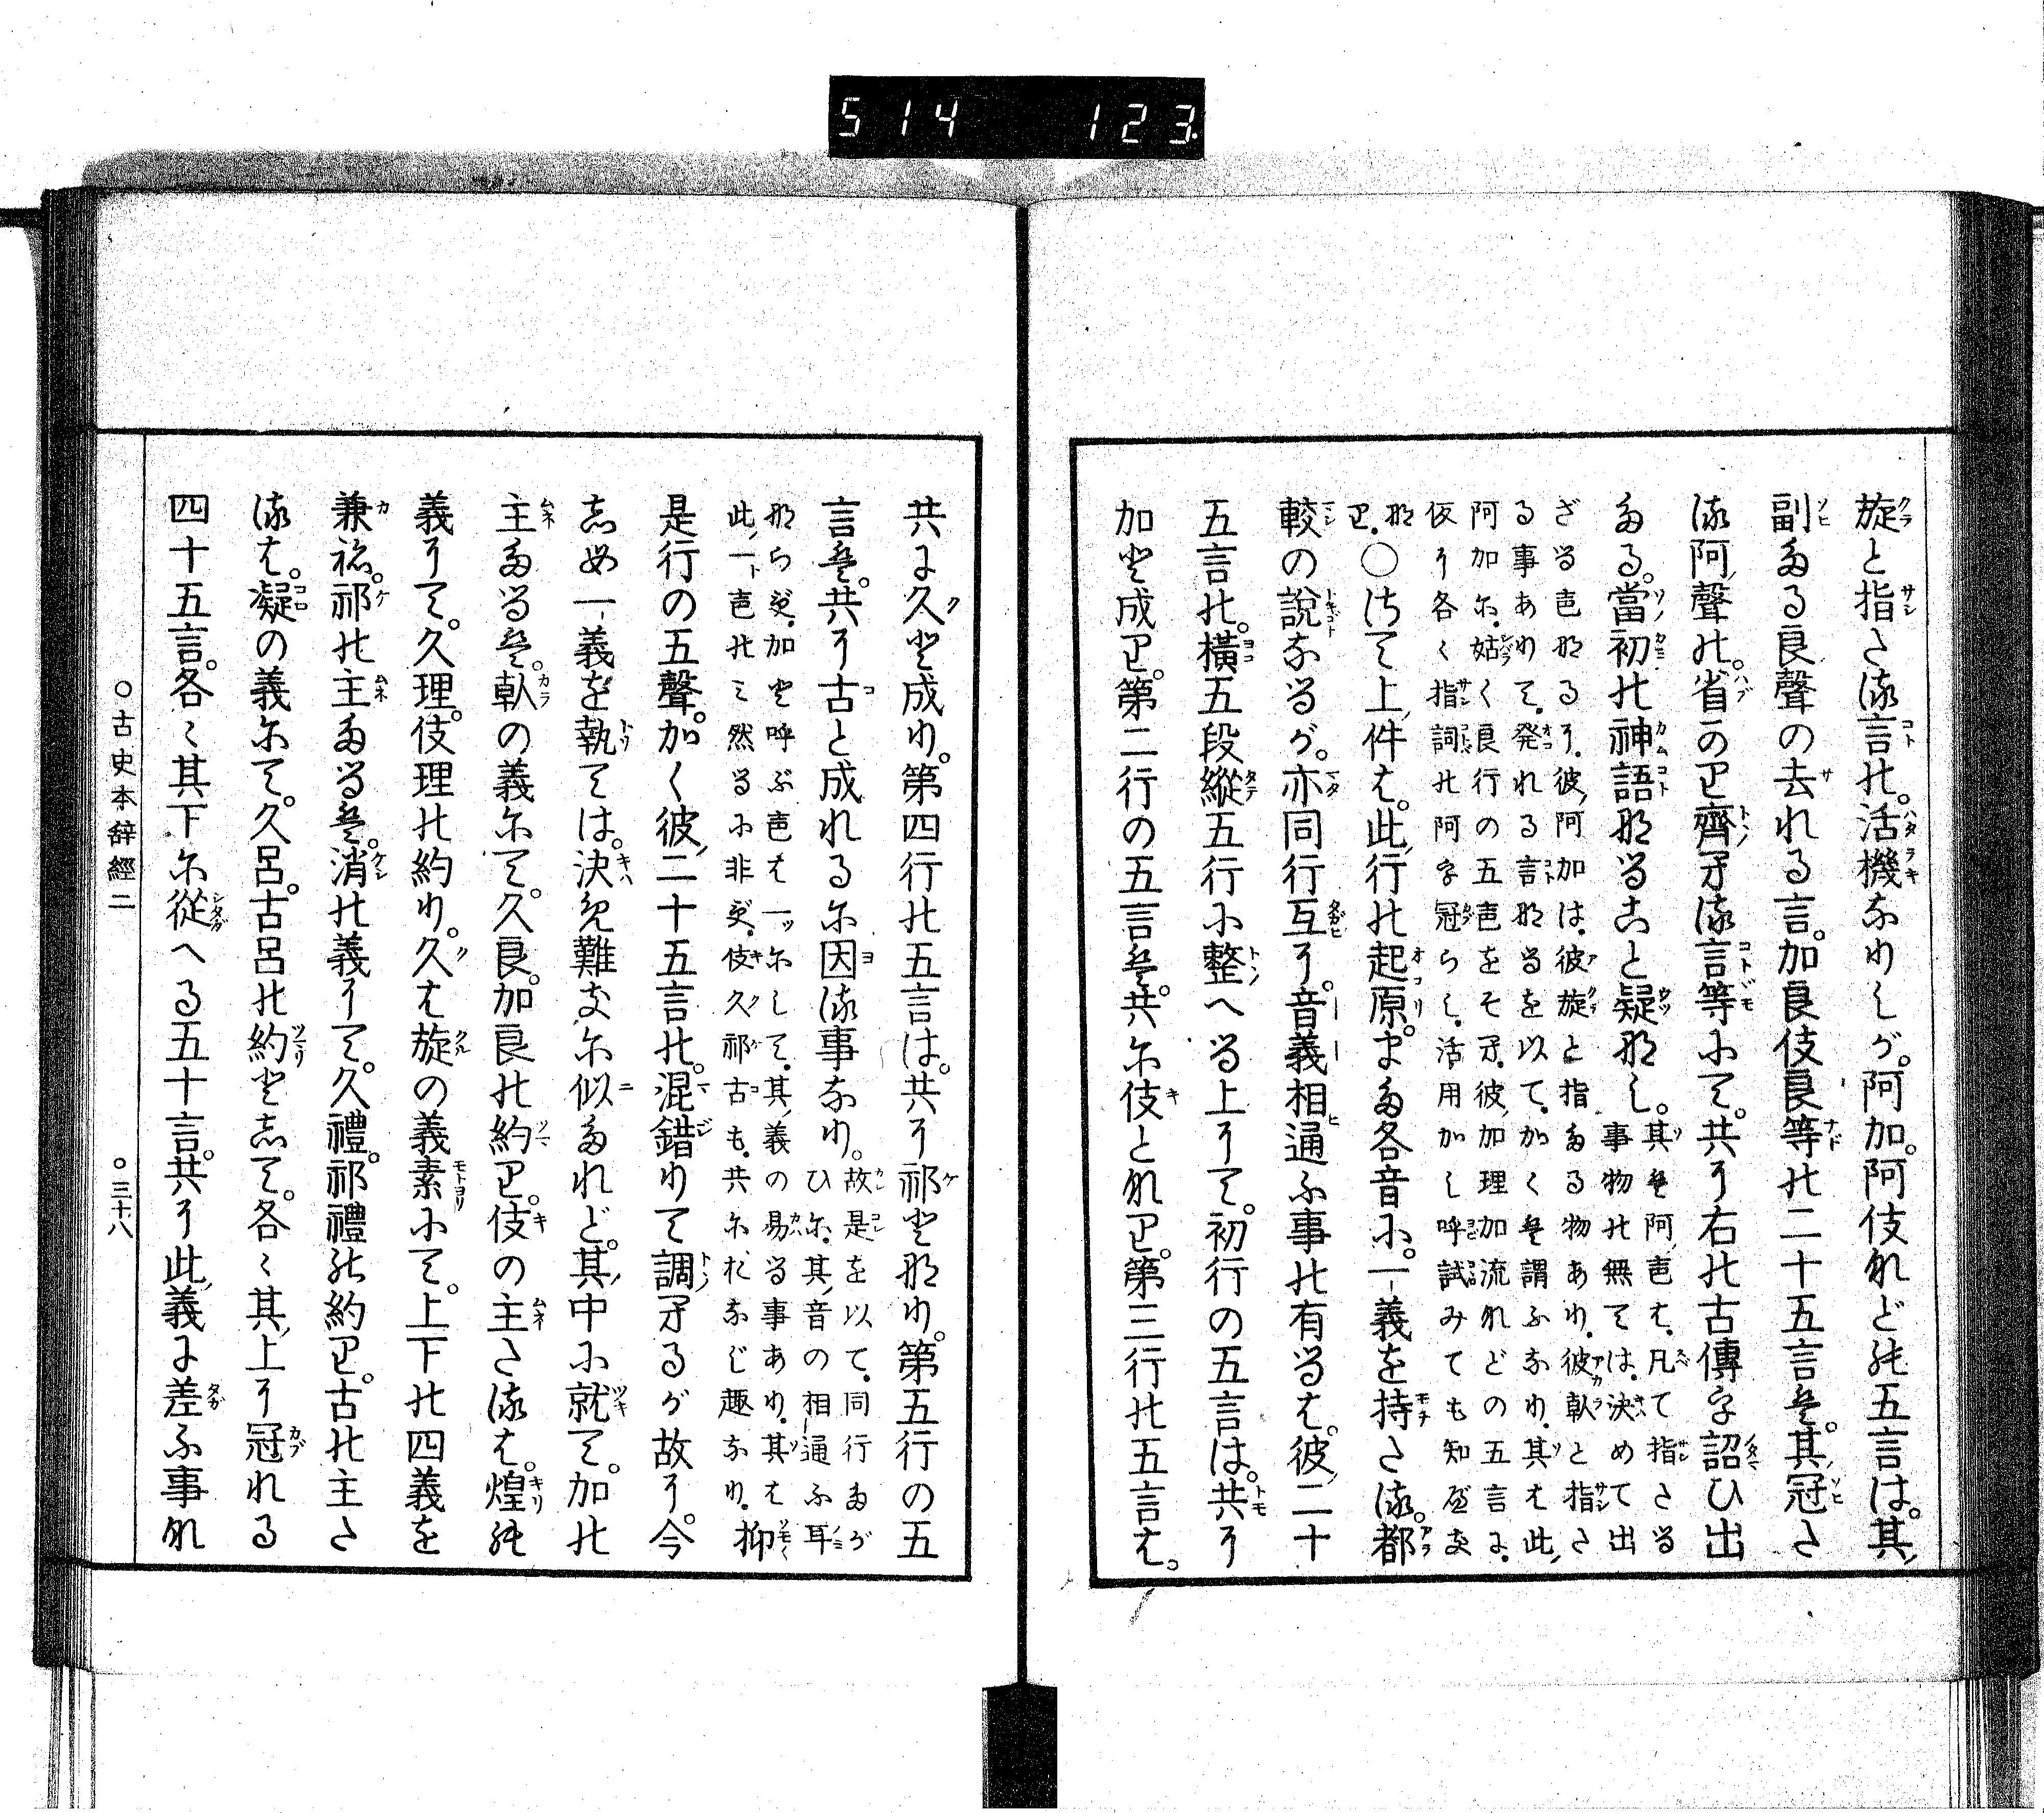 514 123
旋と指さ流言の。活機なりしが。阿加。阿伎など能五言は。其
副たる良聲の去れる言。加良伎良等の二十五言は。其冠さ
流阿聲の。省かり齊ひ流言等にて。共に右の古傳を詔ひ出
たる。當初の神語なること疑なし。其は阿音は。凡て指さる
事物の無ては。決めて出
ざる音なるに。彼阿加は。彼旋と指たる物あり。彼軑と指さ
る事ありて。発れる言なるを以て。かくは謂ふなり。其は此
阿加に。姑く良行の五音をそひ。彼加理加流などの五言に。
仮に各く指詞の阿字冠らし。活用かし呼試みても知べき
なり。○さて上件は。此行の起原。また各音に。一義を持さ流。都
較の說なるが。亦同行互に。音義相通ふ事の有るは。彼二十
五言の。橫五段縱五行に整へる上にて。初行の五言は。共に
加と成り。第二行の五言は。共に伎となり。第三行の五言は。
共に久と成り。第四行の五言は。共に祁と那り。第五行の五
言は。共に古と成れるに因流事なり。故是を以て。同行たが
ひに。其音の相通ふ耳
ならず。加と呼ぶ音は一ツにして。其義の易る事あり。其は
此一ト音のみ然るに非ず。伎久祁古も。共におなじ趣なり。抑
是行の五聲。かく彼二十五言の。混錯りて調ひるが故に。今
志め一義を執ては。決め難きに似たれど。其中に就て。加の
主たるは。軑の義にて。久良。加良の約り。伎の主さ流は。煌能
義にて。久理。伎理の約り。久は旋の義素にて。上下の四義を
兼ね。祁の主たるは。消の義にて。久禮。祁禮能約り。古の主さ
流は。凝の義にて。久呂。古呂の約と志て。各々其上に冠れる
四十五言。各々其下に從へる五十言。共に此義に差ふ事な
○古史本辭經二 ○三十八